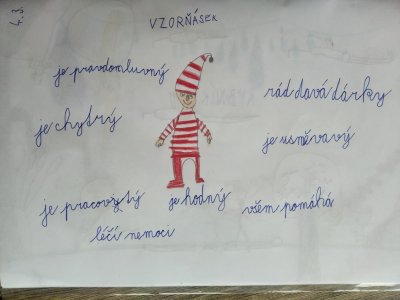 4. 3.
VZORŇÁSEK
je pravdomluvný
rád dává dárky
je chytrý
je usměvavý
je pracovytý
je hodný
všem pomáhá
léčí nemoci